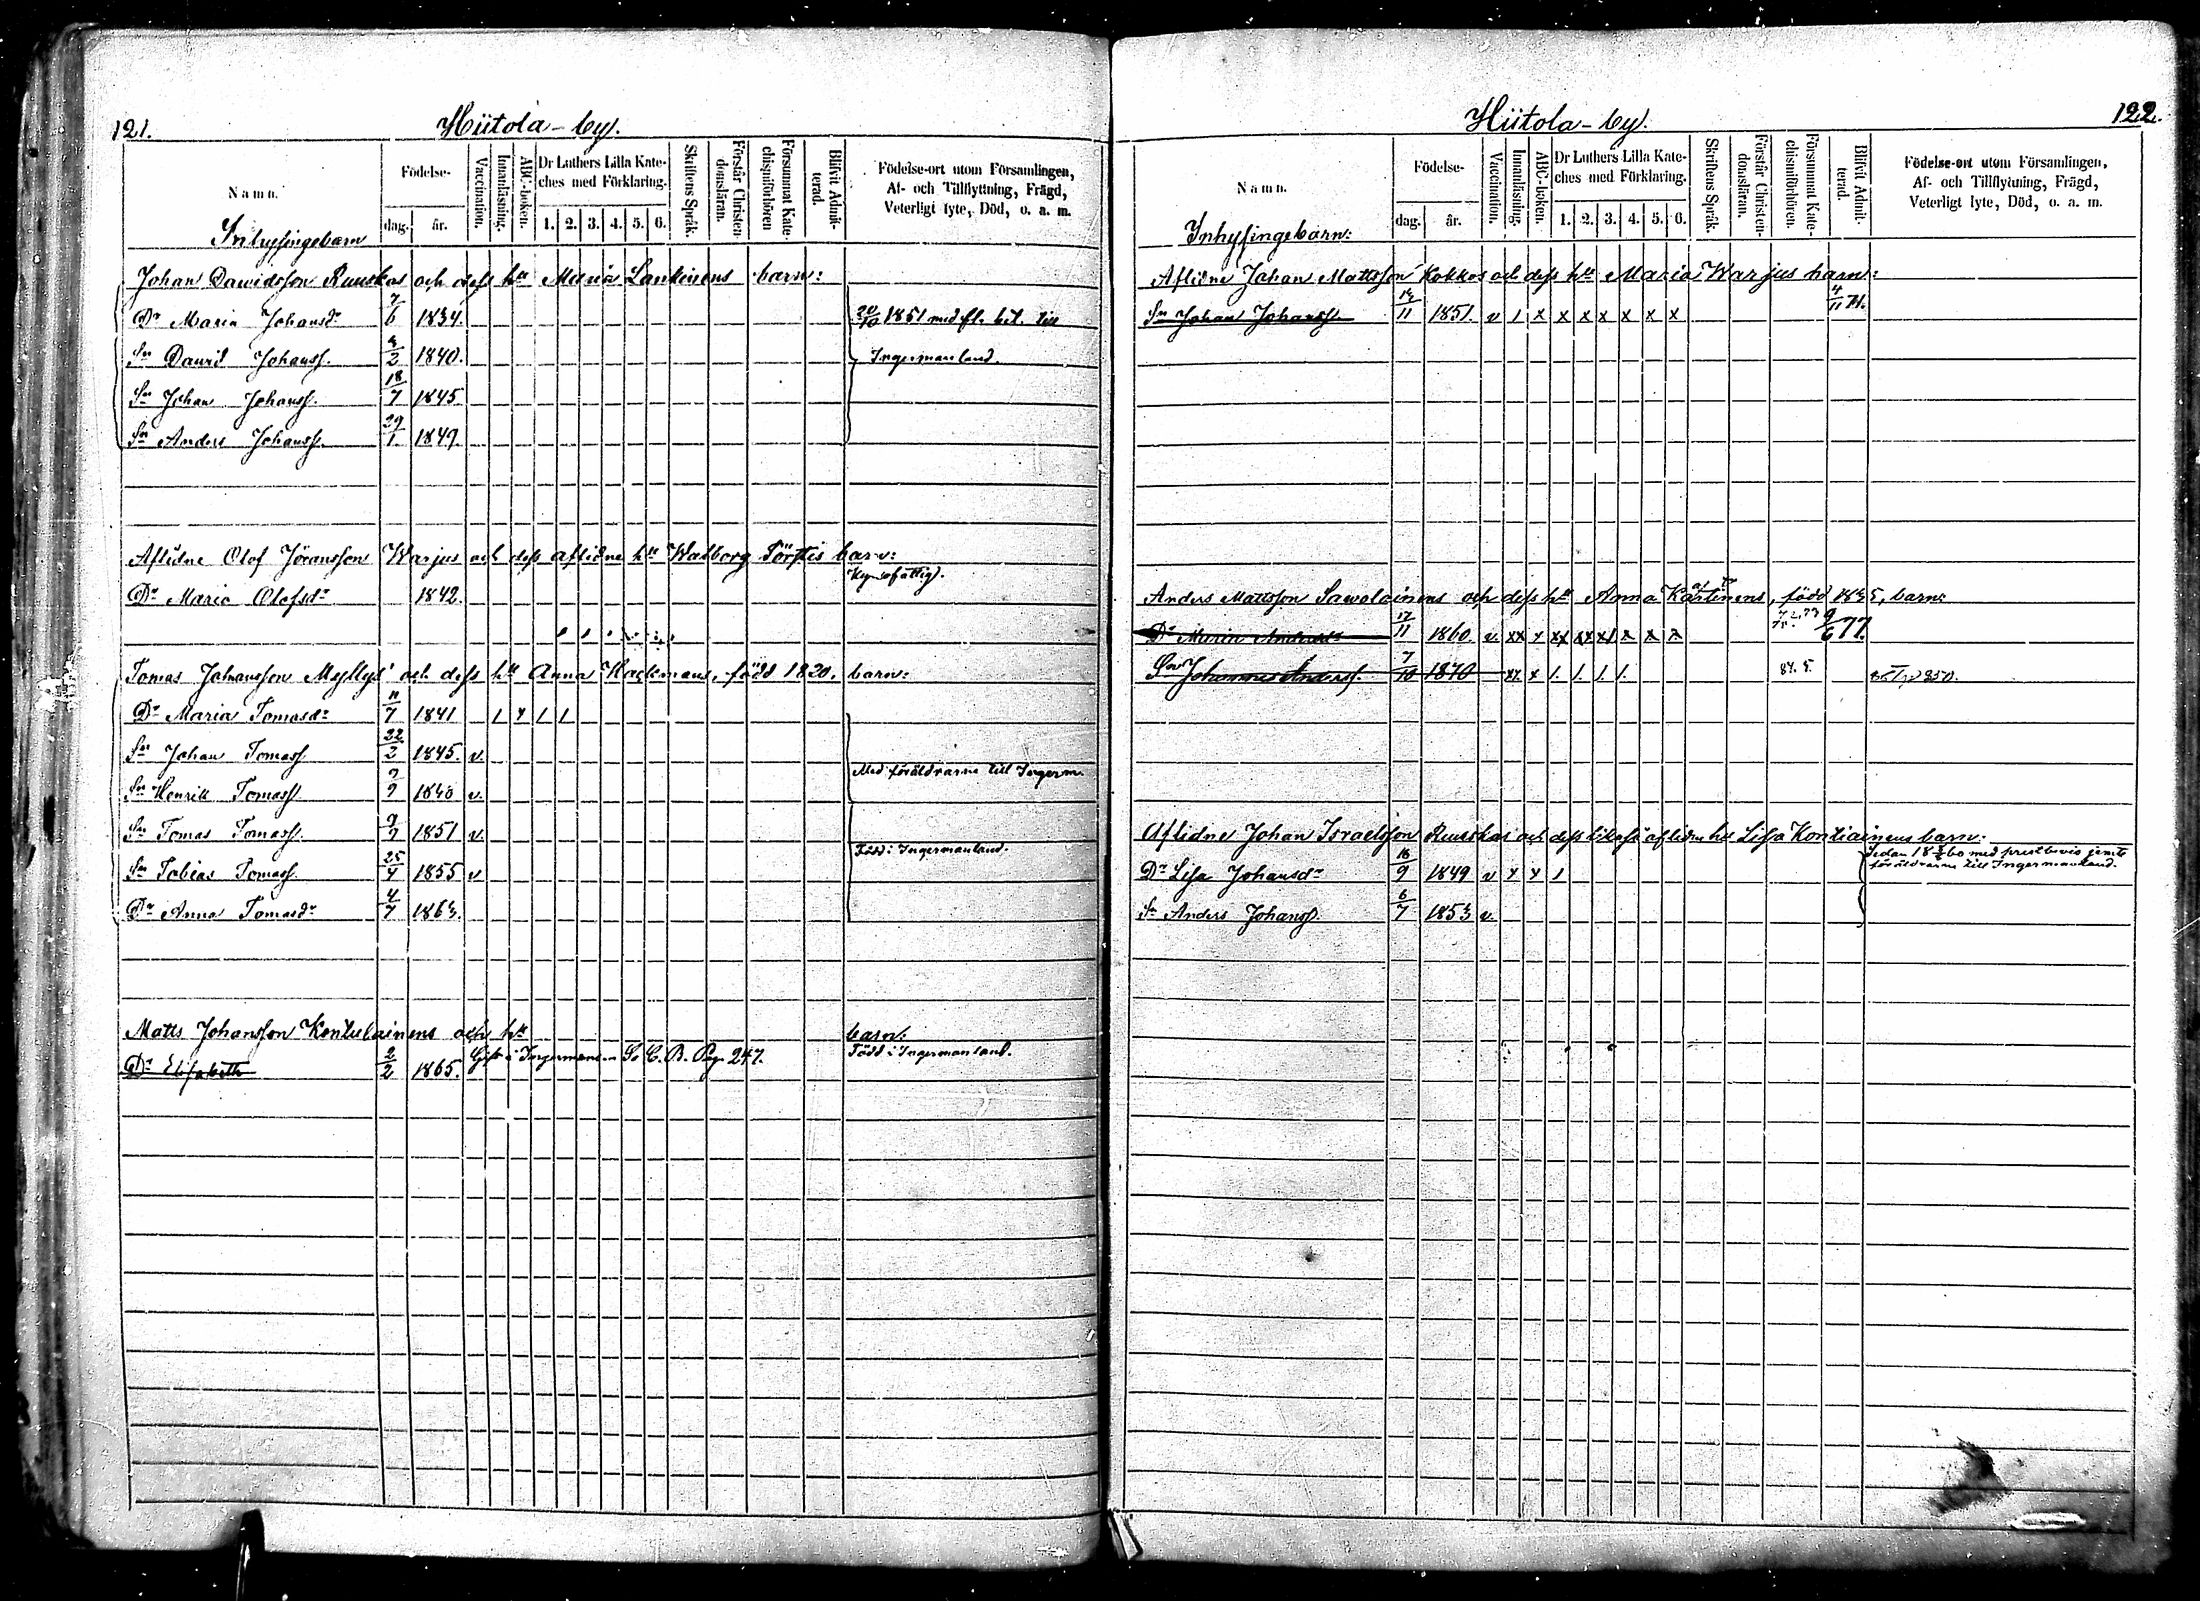 121.
Hiitola-by.
Namn.
Födelse-
dag. år.
Vaccination.
Innanläsning.
ABC-boken.
Dr Luthers Lilla Kate-
ches med Förklaring.
1. 2. 3. 4. 5. 6.
Skriftens Språk.
Förstår Christen-
domsläran.
Försummat Kate-
chismiförhören
Blifvit Admit-
terad.
Födelse-ort utom Församlingen,
Af- och Tillflyttning, Frägd,
Veterligt lyte, Död, o. a. m.
Inhysingebarn
Johan Dawidsson Ruuskas och dess hu Maria Lankinens barn:
Dr Maria Johansdr 7/6 1834. 20/10 1851 med fl. bet. till
Sn David Johanss. 4/2 1840. Ingermanland.
Sn Johan Johanss. 18/7 1845
Sn Anders Johanss. 29/1. 1849.
Aflidne Olof Jöransson Warjus och dess aflidne hu Walborg Törstis barn:
Dr Maria Olofsdr 1842.
Tomas Johansson Myllys och dess hu Anna Hackmans, född 1820. barn:
Dr Maria Tomasdr 11/7 1841 1 x 1 1
Sn Johan Tomass 22/2 1845. v.
Med föräldrarne till Ingerm.
Sn Henrik Tomass. v.
Sn Tomas Tomass. 9/9 1851 v.
Född i Ingermanland.
Sn Tobias Tomass. 25/4 1855 v
Dr Anna Tomasdr 4/7 1863.
Matts Johansson Kontulainens och hu barn:
Dr Elisabeth 2/2 1865. Gift i Ingermanl. Se C. B. Pag. 247. Född i Ingermanland.
122.
Hiitola-by.
Namn.
Födelse-
dag. år.
Vaccination.
Innanläsning.
ABC-boken.
Dr Luthers Lilla Kate-
ches med Förklaring.
1. 2. 3. 4. 5. 6.
Skriftens Språk.
Förstår Christen-
domsläran.
Försummat Kate-
chismiförhören.
Blifvit Admit-
terad.
Födelse-ort utom Församlingen,
Af- och Tillflyttning, Frägd,
Veterligt lyte, Död, o. a. m.
Inhysingebarn:
Aflidne Johan Mattsson Kokkos och dess hu Maria Warjus barn:
Sn Johan Johanss. 1851. v 1 x x x x x x x 4/11 71.
Anders Mattsson Sawolainens och dess hu Anna Kartinens, född 1835, barn:
Dr Maria Andersdr 17/11 1860. v. xx x xx xx x1 x x x 9/6 77.
Sn Johannes Anderss. 7/10 1870 xx x 1. 1. 1. 1. 87. 5.
Aflidne Johan Israelsson Ruuskas och dess likaså aflidne hu Lisa Kontiainens barn:
Sedan 18 60 med prestbevis jemte
föräldrarne till Ingermanland.
Dr Lisa Johansdr 16/9 1849 v x x 1
Sn Anders Johanss. 6/7 1853 v.